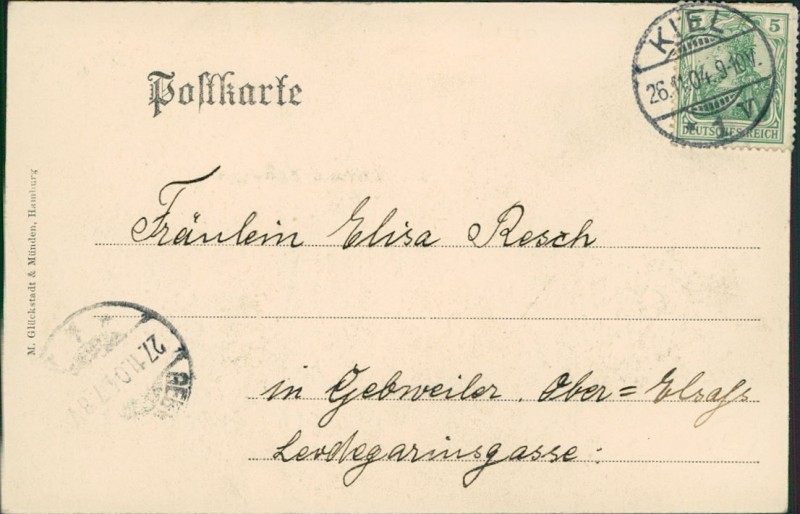 Postkarte
KIEL
26.11.04. 9-10V.
* 1 V
5
DEUTSCHES REICH
M. Glückstadt & Münden, Hamburg
Fräulein Elisa Resch
27.11.04
in Gebweiler. Ober=Elsaß
Leodegarinsgasse: